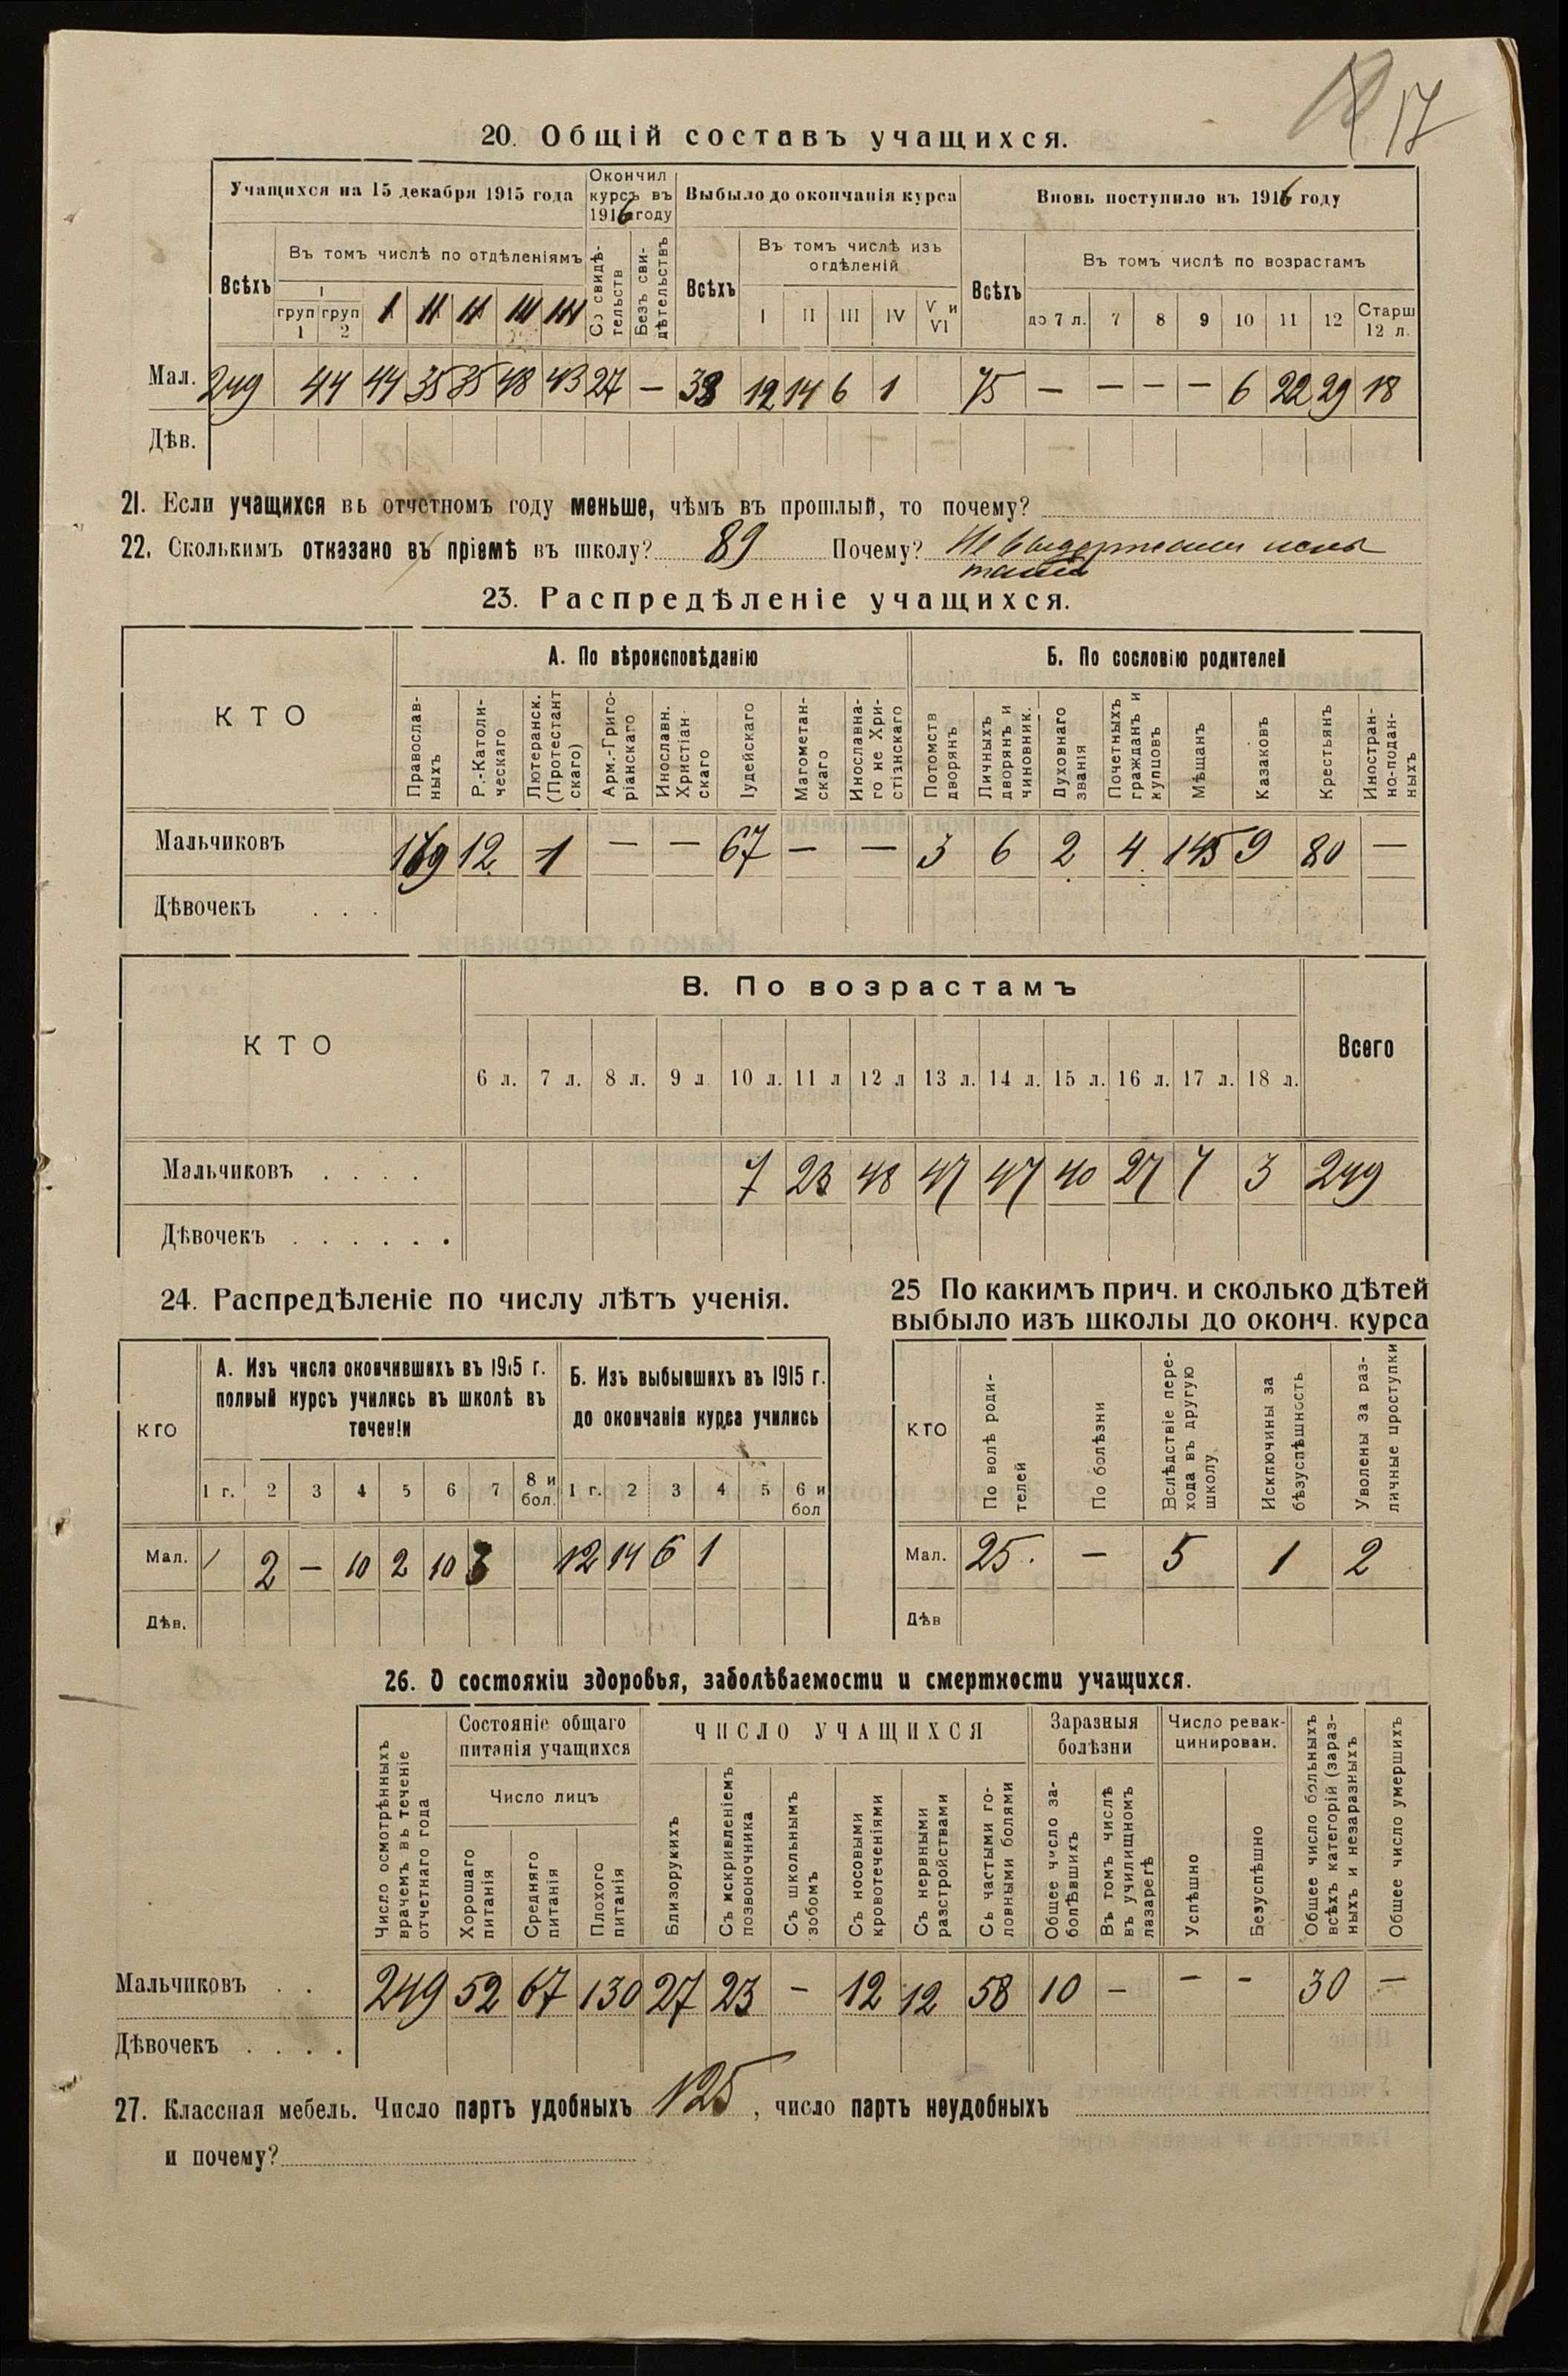 17
20. Общій составъ учащихся.
Учащихся на 15 декабря 1915 года
Окончил курсъ въ 1916 году
Выбыло до окончанія курса
Вновь поступило въ 1916 году
Всѣхъ
Въ томъ числѣ по отдѣленіямъ
I
груп 1
груп 2
I II II III III
Со свидѣтельств
Безъ свидѣтельствъ
Всѣхъ
Въ томъ числѣ изъ отдѣленій
I II III IV V и VI
Всѣхъ
Въ томъ числѣ по возрастамъ
до 7 л. 7 8 9 10 11 12 Старш 12 л.
Мал. 249 44 44 35 35 48 43 27 — 33 12 14 6 1 75 — — — — 6 22 29 18
Дѣв.
21. Если учащихся въ отчетномъ году меньше, чѣмъ въ прошлый, то почему?
22. Сколькимъ отказано въ пріемѣ въ школу? 89 Почему? Не выдержали испы
танія
23. Распредѣленіе учащихся.
КТО
А. По вѣроисповѣданію
Б. По сословію родителей
Православныхъ
Р.-Католическаго
Лютеранск. (Протестантскаго)
Арм.-Григоріанскаго
Инославн. Христіанскаго
Іудейскаго
Магометанскаго
Инославнаго не Христіанскаго
Потомств дворянъ
Личныхъ дворянъ и чиновник.
Духовнаго званія
Почетныхъ гражданъ и купцовъ
Мѣщанъ
Казаковъ
Крестьянъ
Иностранно-подданныхъ
Мальчиковъ 169 12 1 — — 67 — — 3 6 2 4 145 9 80 —
Дѣвочекъ . . .
КТО
В. По возрастамъ
Всего
6 л. 7 л. 8 л. 9 л 10 л. 11 л 12 л 13 л. 14 л. 15 л. 16 л. 17 л. 18 л.
Мальчиковъ . . . . 7 23 48 47 47 40 27 7 3 249
Дѣвочекъ . . . . . .
24. Распредѣленіе по числу лѣтъ ученія.
кто
А. Изъ числа окончившихъ въ 1915 г.
полный курсъ учились въ школѣ въ
теченіи
Б. Изъ выбывшихъ въ 1915 г.
до окончанія курса учились
1 г. 2 3 4 5 6 7 8 и бол. 1 г. 2 3 4 5 6 и бол
Мал. 2 — 10 2 10 3 12 14 6 1
Дѣв.
25 По какимъ прич. и сколько дѣтей
выбыло изъ школы до оконч. курса
кто
По волѣ родителей
По болѣзни
Вслѣдствіе перехода въ другую школу
Исключины за бѣзуспѣшность
Уволены за различные проступки
Мал. 25. — 5 1 2
Дѣв
26. О состояніи здоровья, заболѣваемости и смертности учащихся.
Число осмотрѣнныхъ врачемъ въ теченіе отчетнаго года
Состояніе общаго питанія учащихся
Число лицъ
Хорошаго питанія
Средняго питанія
Плохого питанія
ЧИСЛО УЧАЩИХСЯ
Близорукихъ
Съ искривленіемъ позвоночника
Съ школьнымъ зобомъ
Съ носовыми кровотеченіями
Съ нервными разстройствами
Съ частыми головными болями
Заразныя болѣзни
Общее число заболѣвшихъ
Въ томъ числѣ въ училищномъ лазаретѣ
Число ревакцинирован.
Успѣшно
Безуспѣшно
Общее число больныхъ всѣхъ категорій (заразныхъ и незаразныхъ
Общее число умершихъ
Мальчиковъ . . 249 52 67 130 27 23 — 12 12 58 10 — — — 30 —
Дѣвочекъ . . . .
27. Классная мебель. Число партъ удобныхъ 125, число партъ неудобныхъ
и почему?